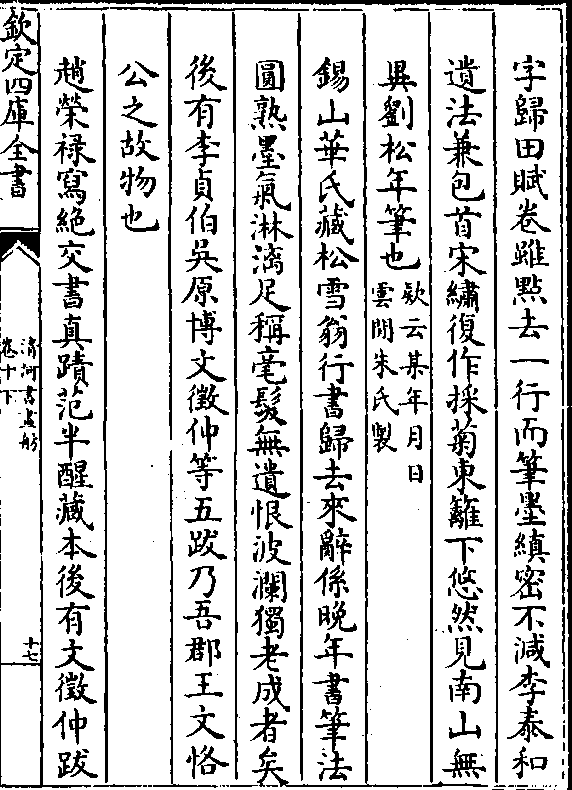 字歸田賦卷雖㸃去一行而筆墨縝密不減李泰和
遺法兼包首宋繡復作採菊東籬下悠然見南山無
異劉松年筆也款云某年月日
雲間朱氏製
錫山華氏藏松雪翁行書歸去來辭係晚年書筆法
圓熟墨氣淋漓足稱毫髮無遺恨波瀾獨老成者矣
後有李貞伯吳原博文徵仲等五跋乃吾郡王文恪
公之故物也
趙榮禄寫絶交書真蹟范半醒藏本後有文徵仲跋
欽定四庫全書
清河書畫舫
卷十下
十七